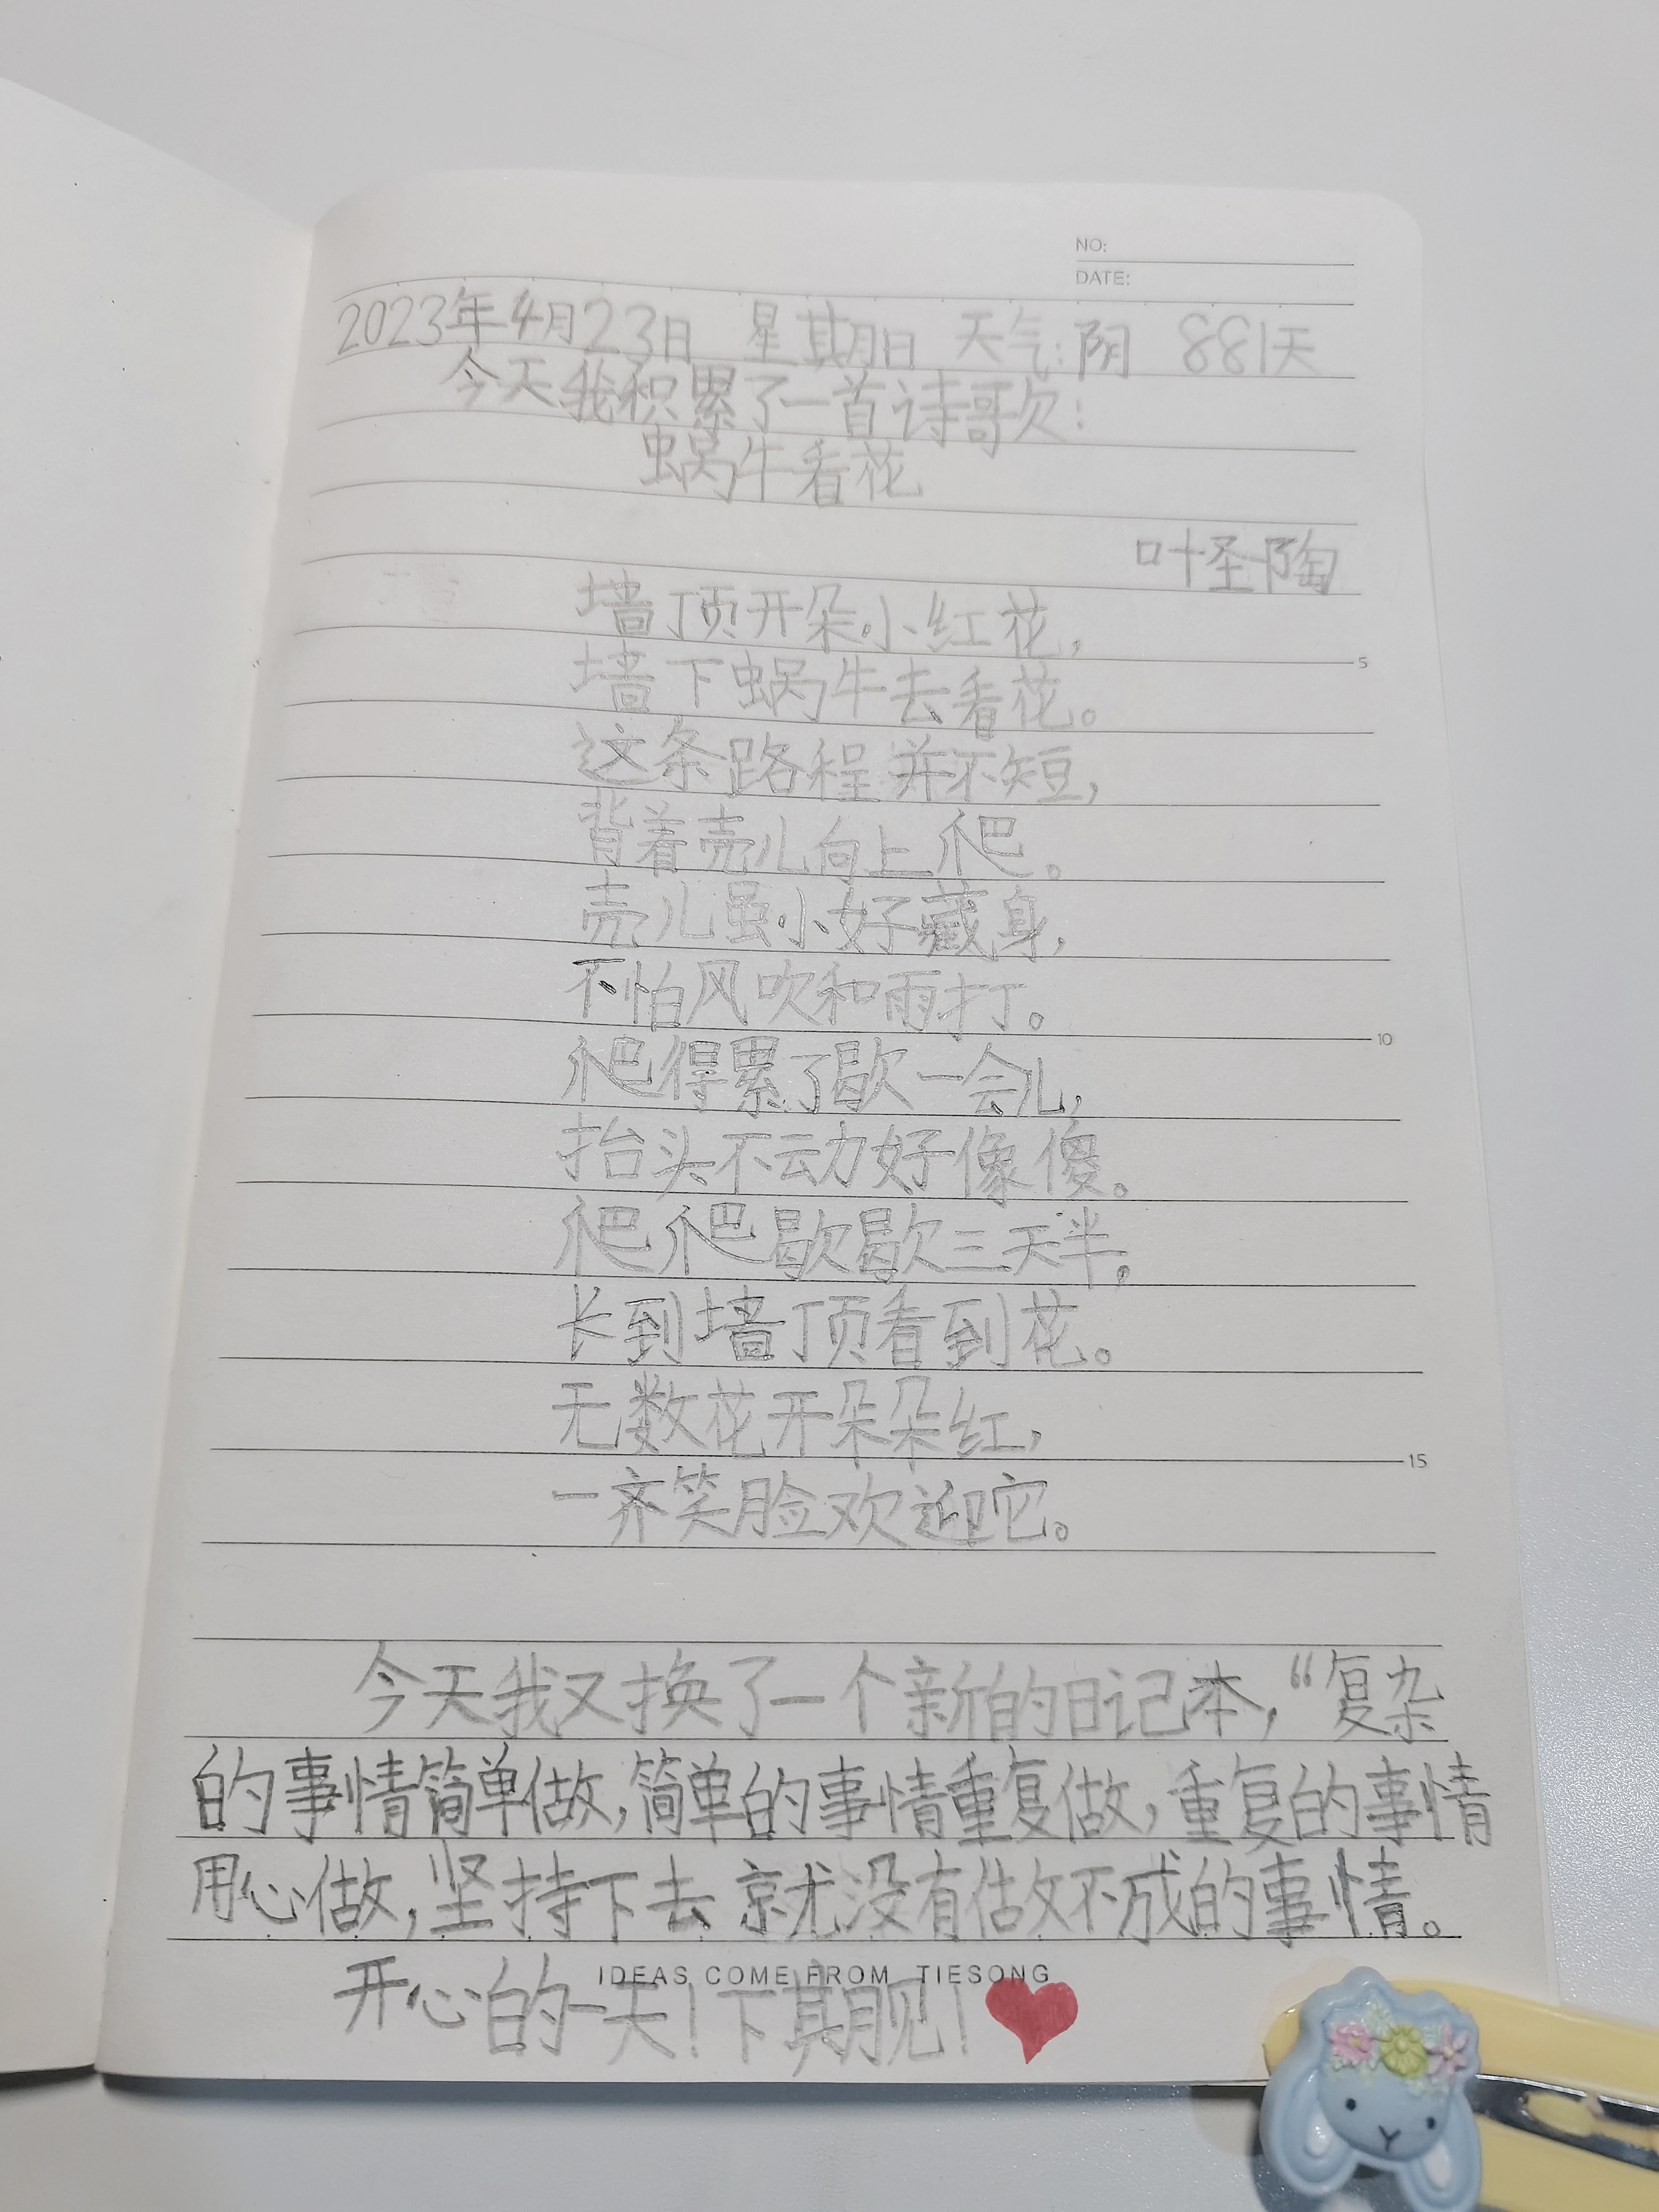 NO:
DATE:
2023年4月23日 星期日 天气:阴 881天
今天我积累了一首诗歌:
蜗牛看花
叶圣陶
墙顶开朵小红花,
5
墙下蜗牛去看花。
这条路程并不短,
背着壳儿向上爬。
壳儿虽小好藏身,
不怕风吹和雨打。
10
爬得累了歇一会儿,
抬头不动好像傻。
爬爬歇歇三天半,
长到墙顶看到花。
无数花开朵朵红,
15
一齐笑脸欢迎它。
今天我又换了一个新的日记本,“复杂
的事情简单做,简单的事情重复做,重复的事情
用心做,坚持下去就没有做不成的事情。
IDEAS COME FROM TIESONG
开心的一天!下期见!